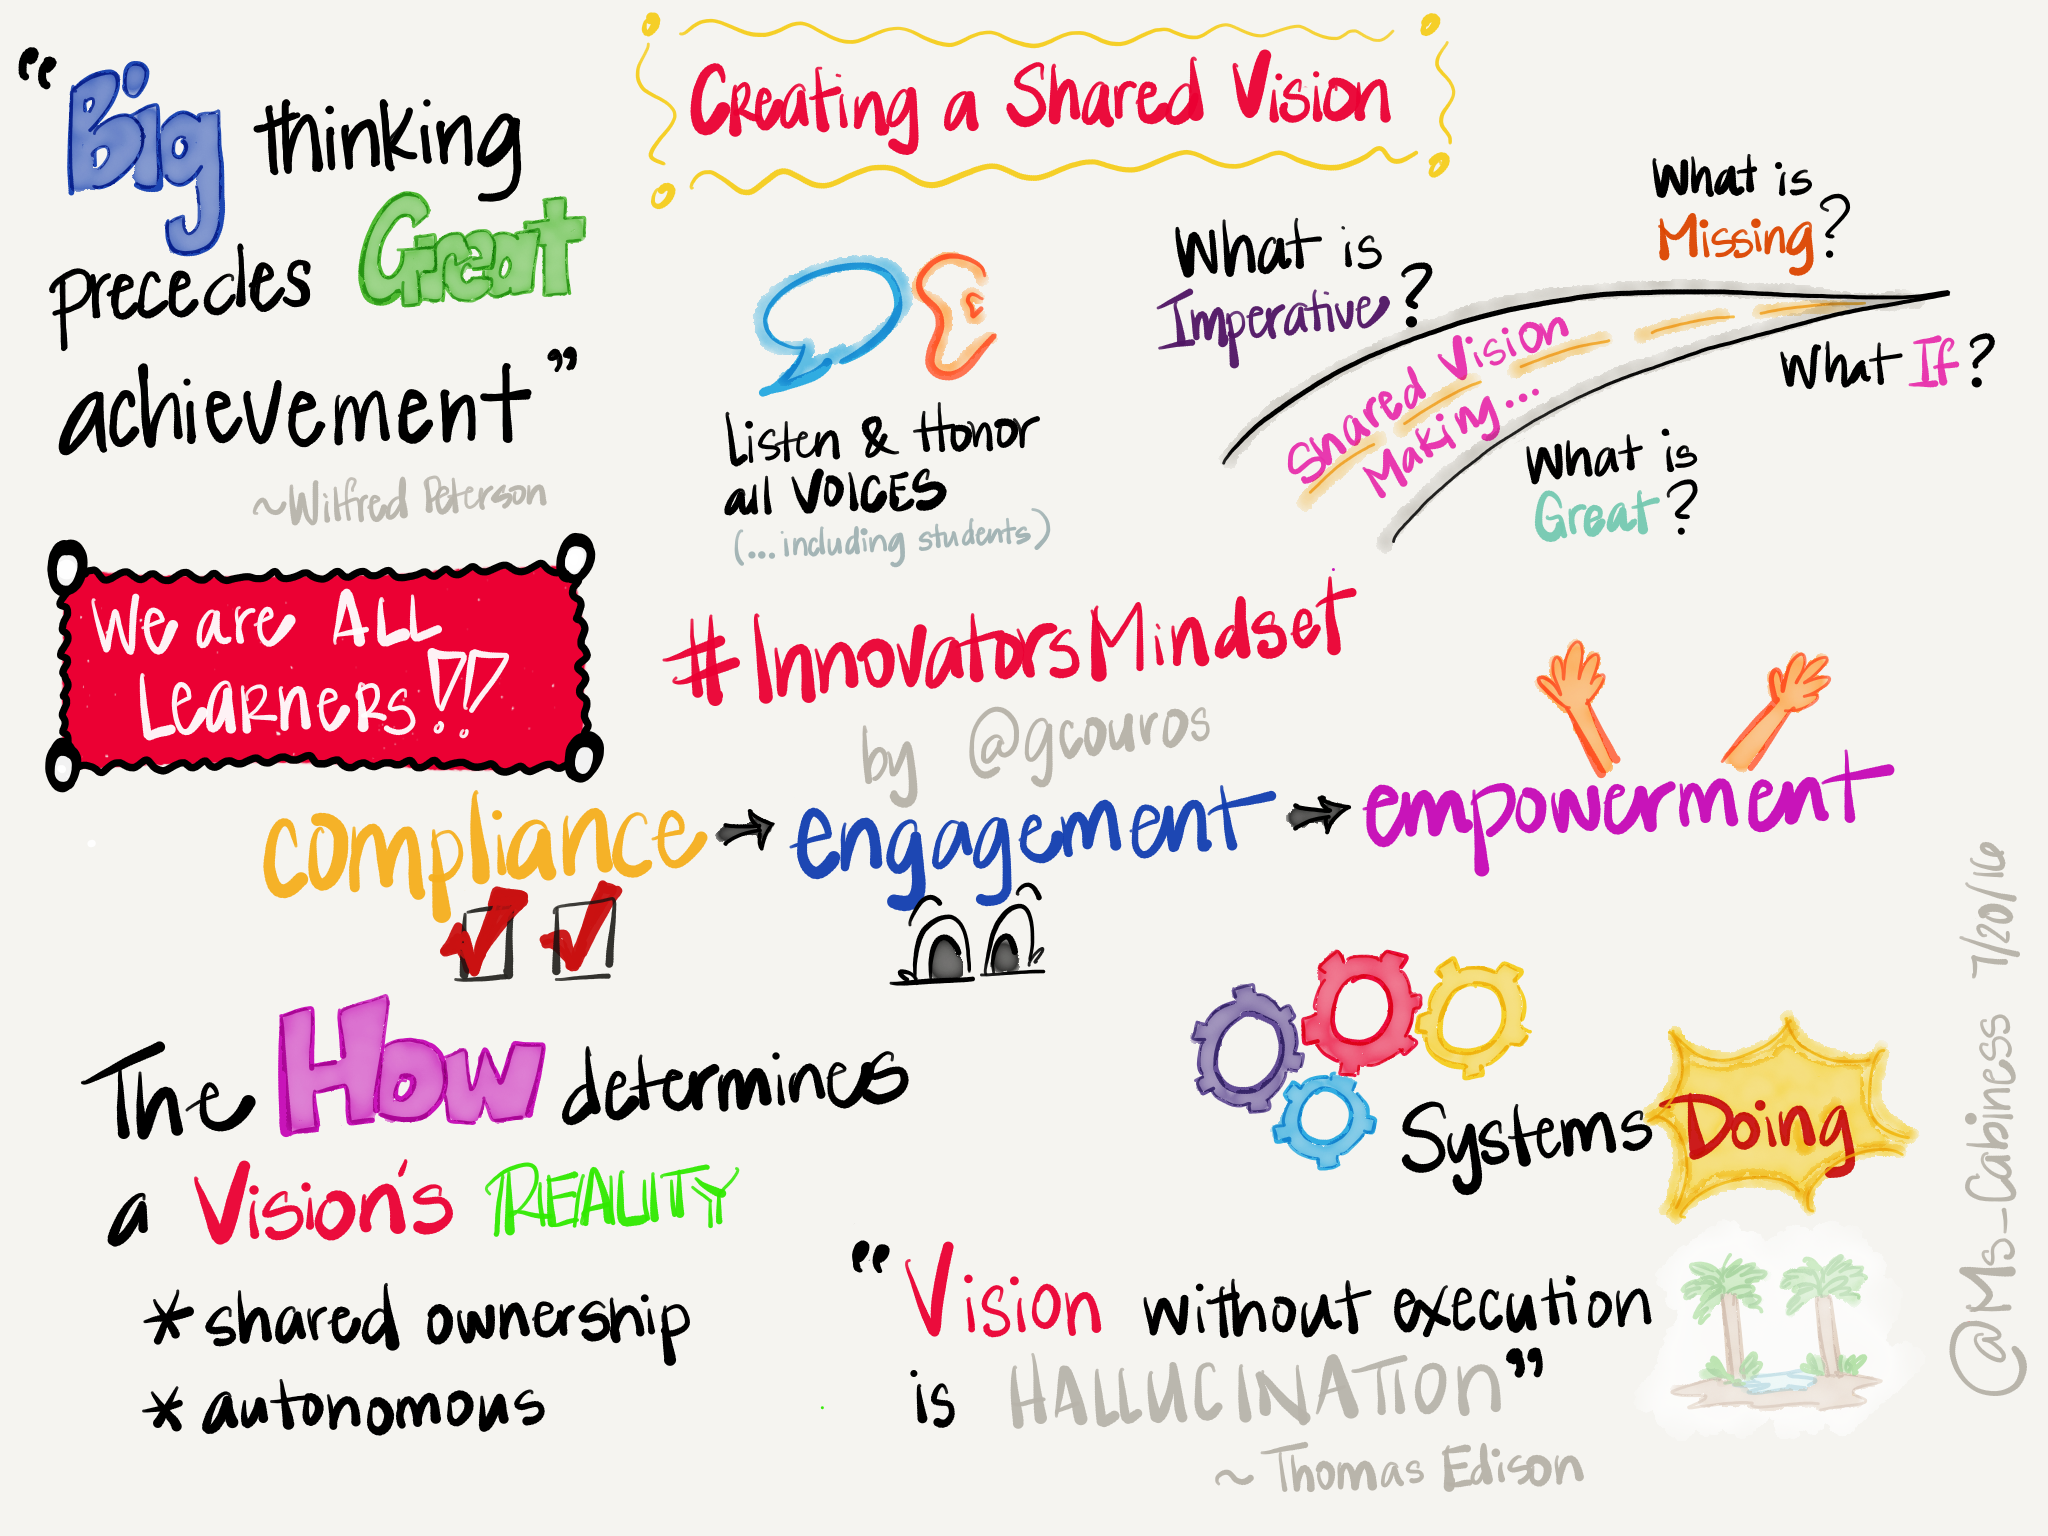 Creating a Shared Vision
“Big thinking
precedes Great
achievement”
~Wilfred Peterson
Listen & Honor
all VOICES
(...including students)
What is
Imperative?
What is
Missing?
Shared Vision
Making...
What If?
What is
Great?
We are ALL
Learners!!
#InnovatorsMindset
by @gcouros
compliance → engagement → empowerment
The How determines
a Vision's REALITY
* shared ownership
* autonomous
Systems Doing
“Vision without execution
is HALLUCINATION”
~ Thomas Edison
@Ms_Cabiness 7/20/16